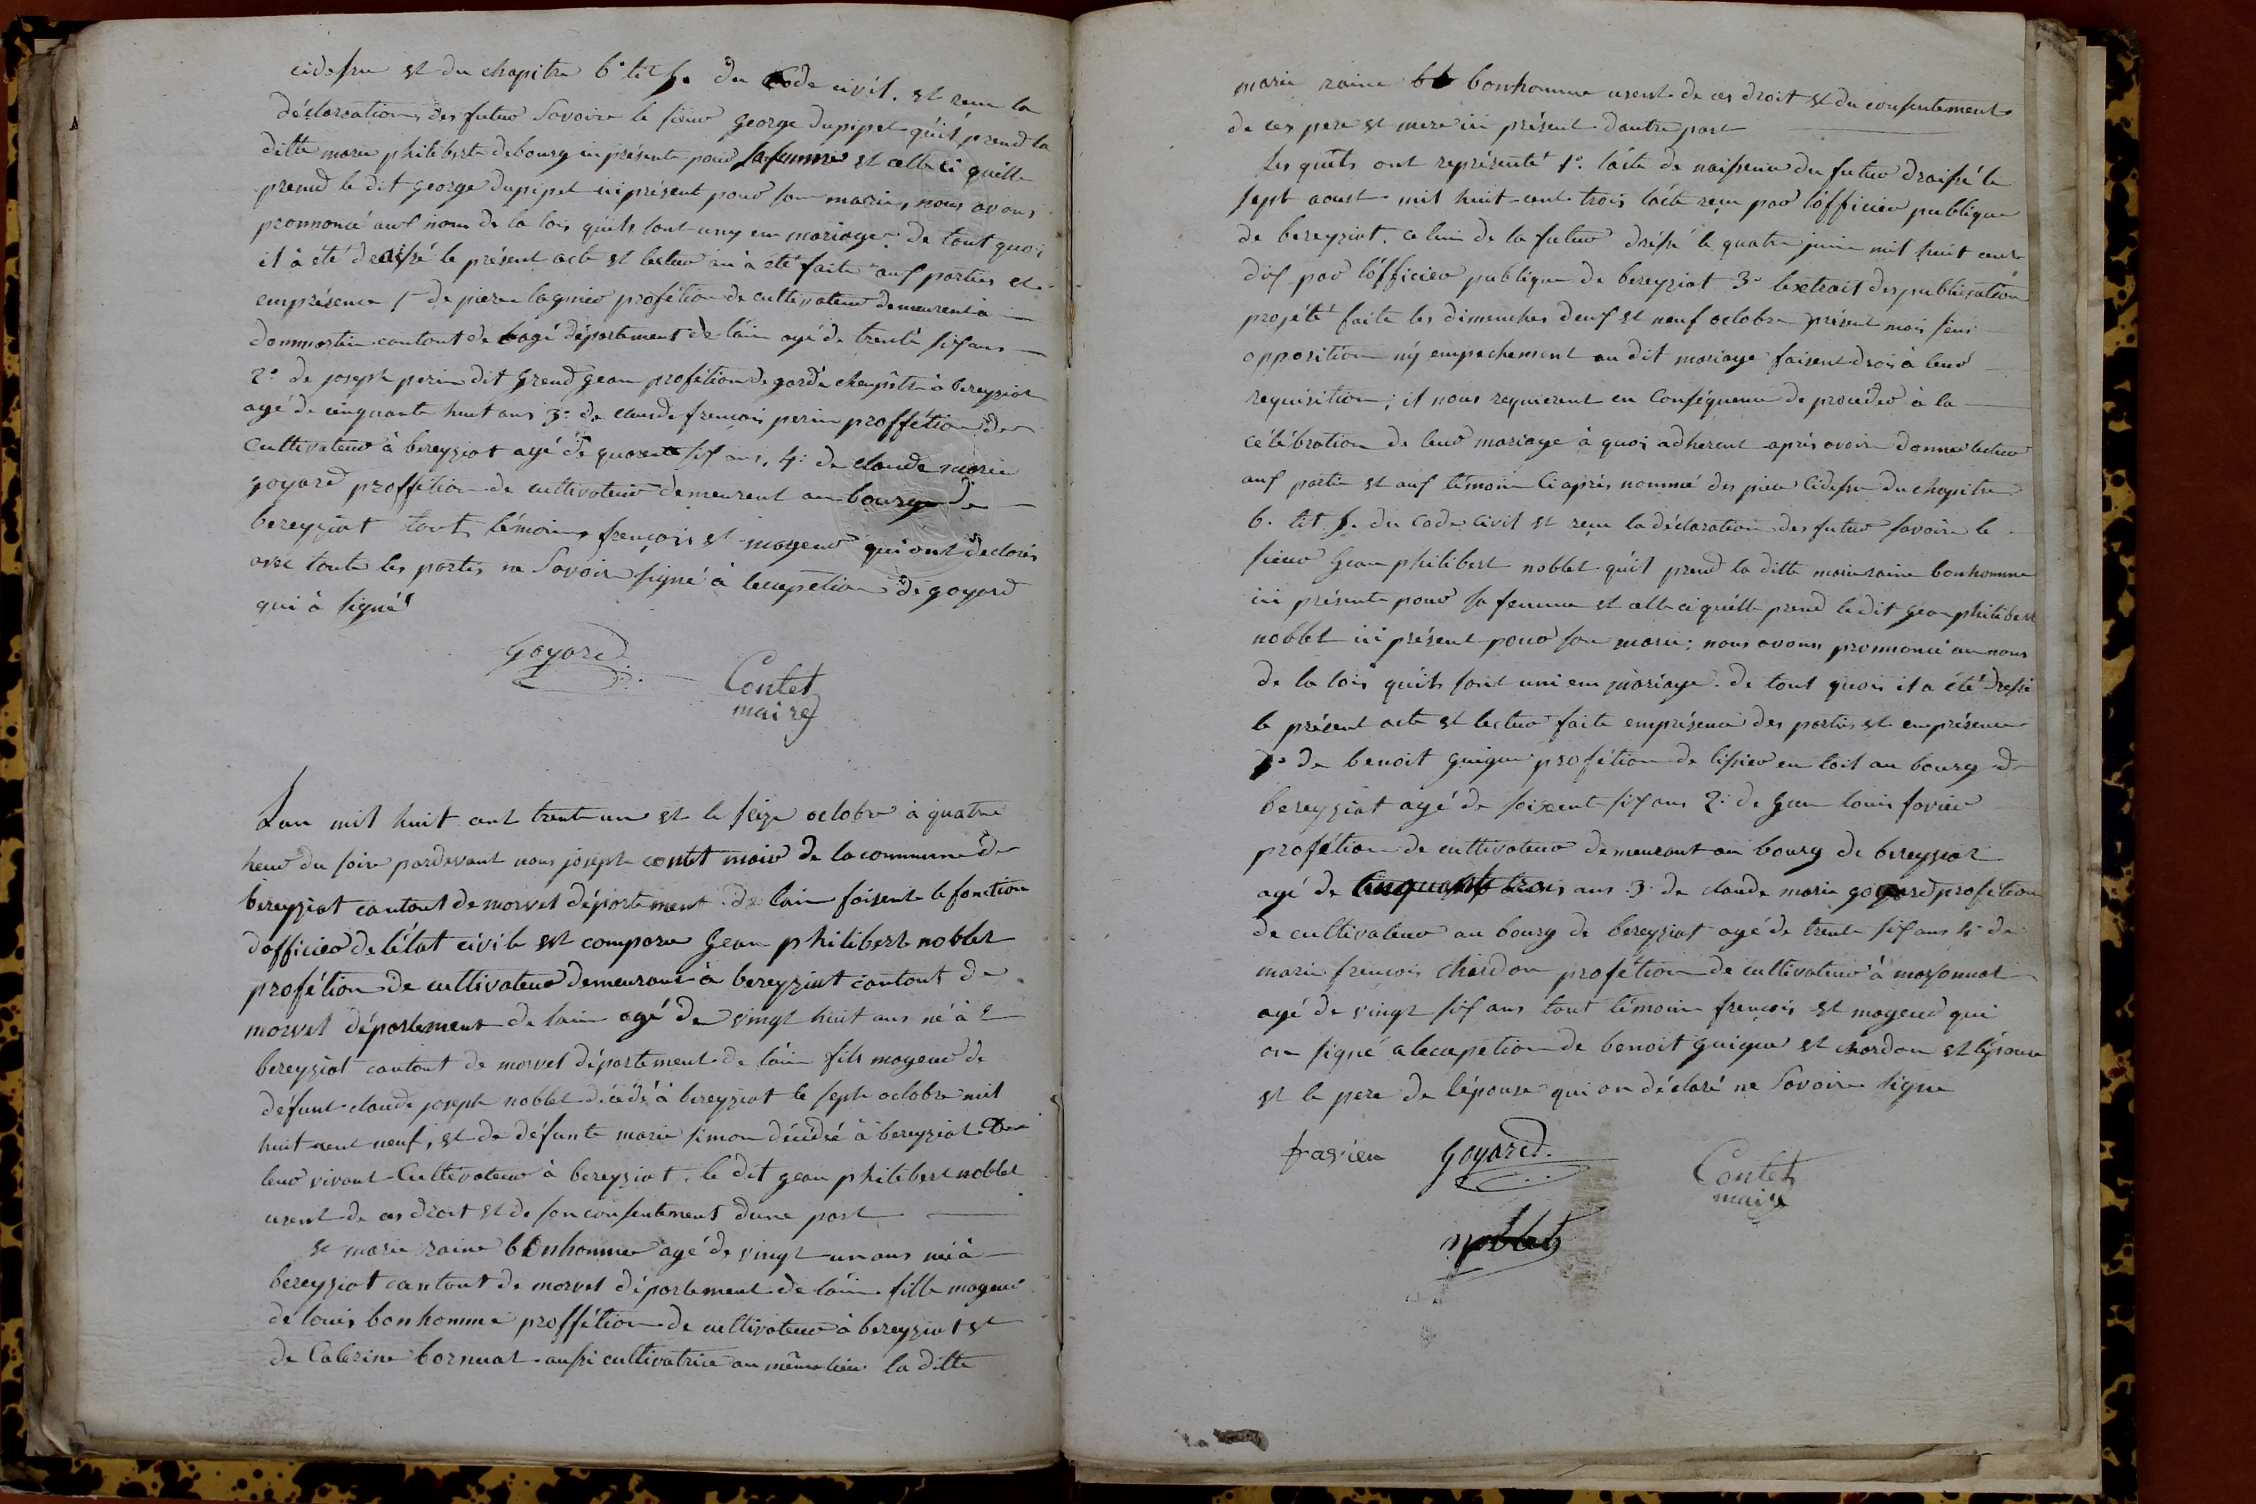 cidessu et du chapitre 6e tit 5e du Code civil. et reçu la
déclaration des futur savoire le sieur george dupipet qu'il prend la
ditte marie philiberte debourg ici présente pour sa femme et celle ci quelle
prend le dit george dupipet ici présent pour son marie, nous avons
prononcé aux nom de la lois quils sont uny en mariage. de tout quoi
il à été draissé le présent acte et lectur an à été faite aux parties et
emprésence 1° de piere lagnier profétion de cultivateur demeurent à
dommartin contont de bagé département de l'ain agé de trente six ans
2° de joseph perin dit grend gean profétion de garde chenpêtre à bereyziat
agé de cinquante huit ans 3° de claude françois perin proffétion de
cultivateur à bereyziat agé de quarente six ans. 4° de claude marie
goyard proffétion de cultivateur demeurent au bourg de
bereyziat tout témoins françois et mageur qui ont declarés
avec toute les partis ne savoir signé à lecxpetion de goyard
qui à signé
Goyard
Contet
maire
Lan mil huit cent trente un et le seize octobre à quatre
heur du soire pardevant nous joseph contet mair de la commune de
bereyziat contont de morvel département de lain faisent le fonction
dofficier de létat civile est comparu Gean philibert noblet
profétion de cultivateur demeurant à bereyziat contont de
morvel département de lain agé de vingt huit ans né à
bereyziat contont de morvel département de lain fils mageur de
défunt claude joseph noblet décédé à bereyziat le sept octobre mil
huit cent neuf, et de défunte marie simon décédé à bereyziat de
leur vivant Cultivateur à bereyziat. le dit gean philibert noblet
usent de ces droit et de son consentement dune part
et marie raine bonhomme agé de vingt un ans né à
bereyziat contont de morvel département de lain fille mageur
de louis bonhomme proffétion de cultivateur à bereyziat et
de Caterine bornuat aussi cultivatrice au même lieu la ditte
marie raine bonhomme usent de ces droit et du consentement
de ces pere et mere ici présent dautre part
les quels ont représenté 1° lacte de naissence du futur draissé le
sept aoust mil huit cent trois lacte reçu par lofficier publique
de bereyziat. celui de la futur dréssé le quatre juin mil huit cent
dix par lofficier publique de bereyziat 3° lextrait des publication
projété faite les dimenches deux et neuf octobre présent mois sens
opposition ny empechement au dit mariage faisent droi à leur
requisition; il nous requierent en conséquence de procéder à la
célébration de leur mariage à quoi adherent après avoir donné lectur
aux partie et aux témoin Ci après nommé des piece Cidessu du chapitre
6. tit 5. du code civil et reçu la déclaration des futur savoir le
sieur gean philibert noblet qu'il prend la ditte marie raine bonhomme
ici présente pour sa femme et celle ci quelle prend ledit gean philibert
noblet ici présent pour son marie; nous avons prononcé au nom
de la lois quils sont uni en mariage. de tout quois il a été dressé
le présent acte et lectur faite emprésence des partis et emprésence
1° de benoit guigue profétion de tissier en toil au bourg de
bereyziat agé de soixent six ans 2° de gean louis favier
profétion de cultivateur demeurant au bourg de bereyziat
agé de cinquante trois ans 3° de claude marie goyard profétion
de cultivateur au bourg de bereyziat agé de trente six ans 4° de
marie françois chardon profétion de cultivateur à marsonnat
agé de vingt six ans tout témoin françois et mageur qui
on signé a lecxpetion de benoit guigue et chardon et lépouse
et le pere de lépouse qui on déclaré ne savoire signe
favieu Goyard
Contet
maire
noblet